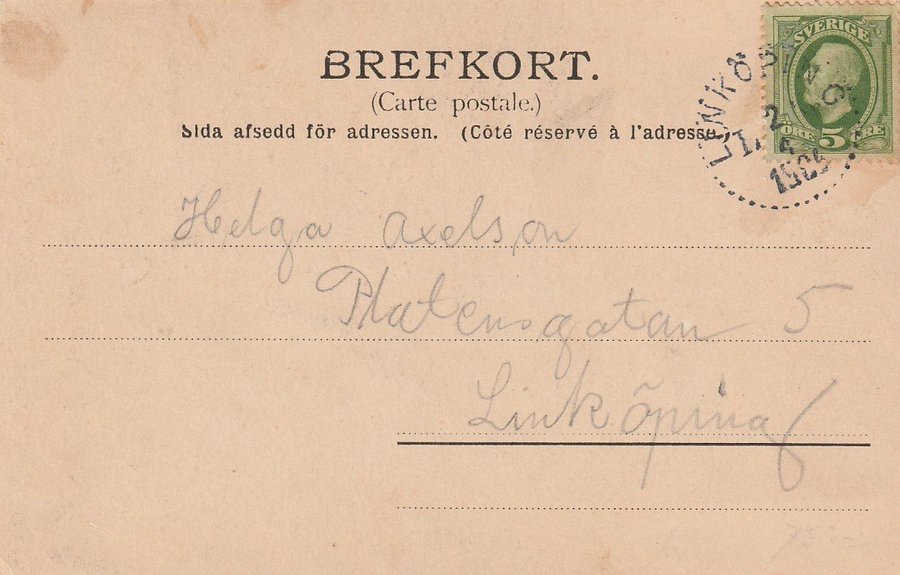 BREFKORT.
(Carte postale.)
Sida afsedd för adressen. (Côté réservé à l'adresse.
SVERIGE
ÖRE 5 ÖRE
LINKÖPING
Helga Axelson
Platensgatan 5
Linköping